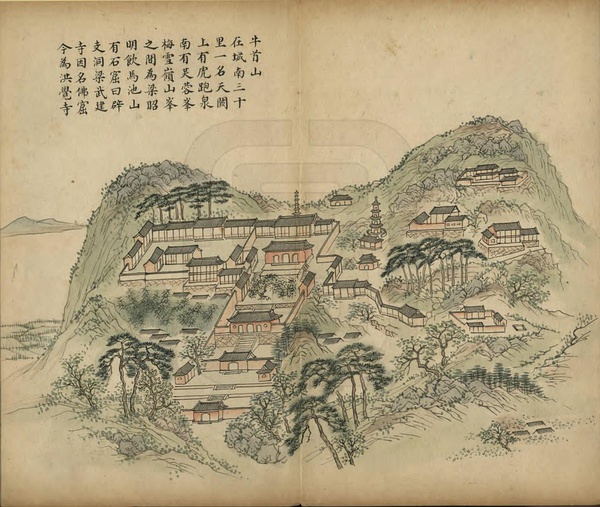 牛首山
在城南三十
里一名天闕
上有虎跑泉
南有芙蓉峯
梅雪嶺山峯
之閒為梁昭
明飲馬池山
有石窟曰辟
支洞梁武建
寺因名佛窟
今為洪覺寺